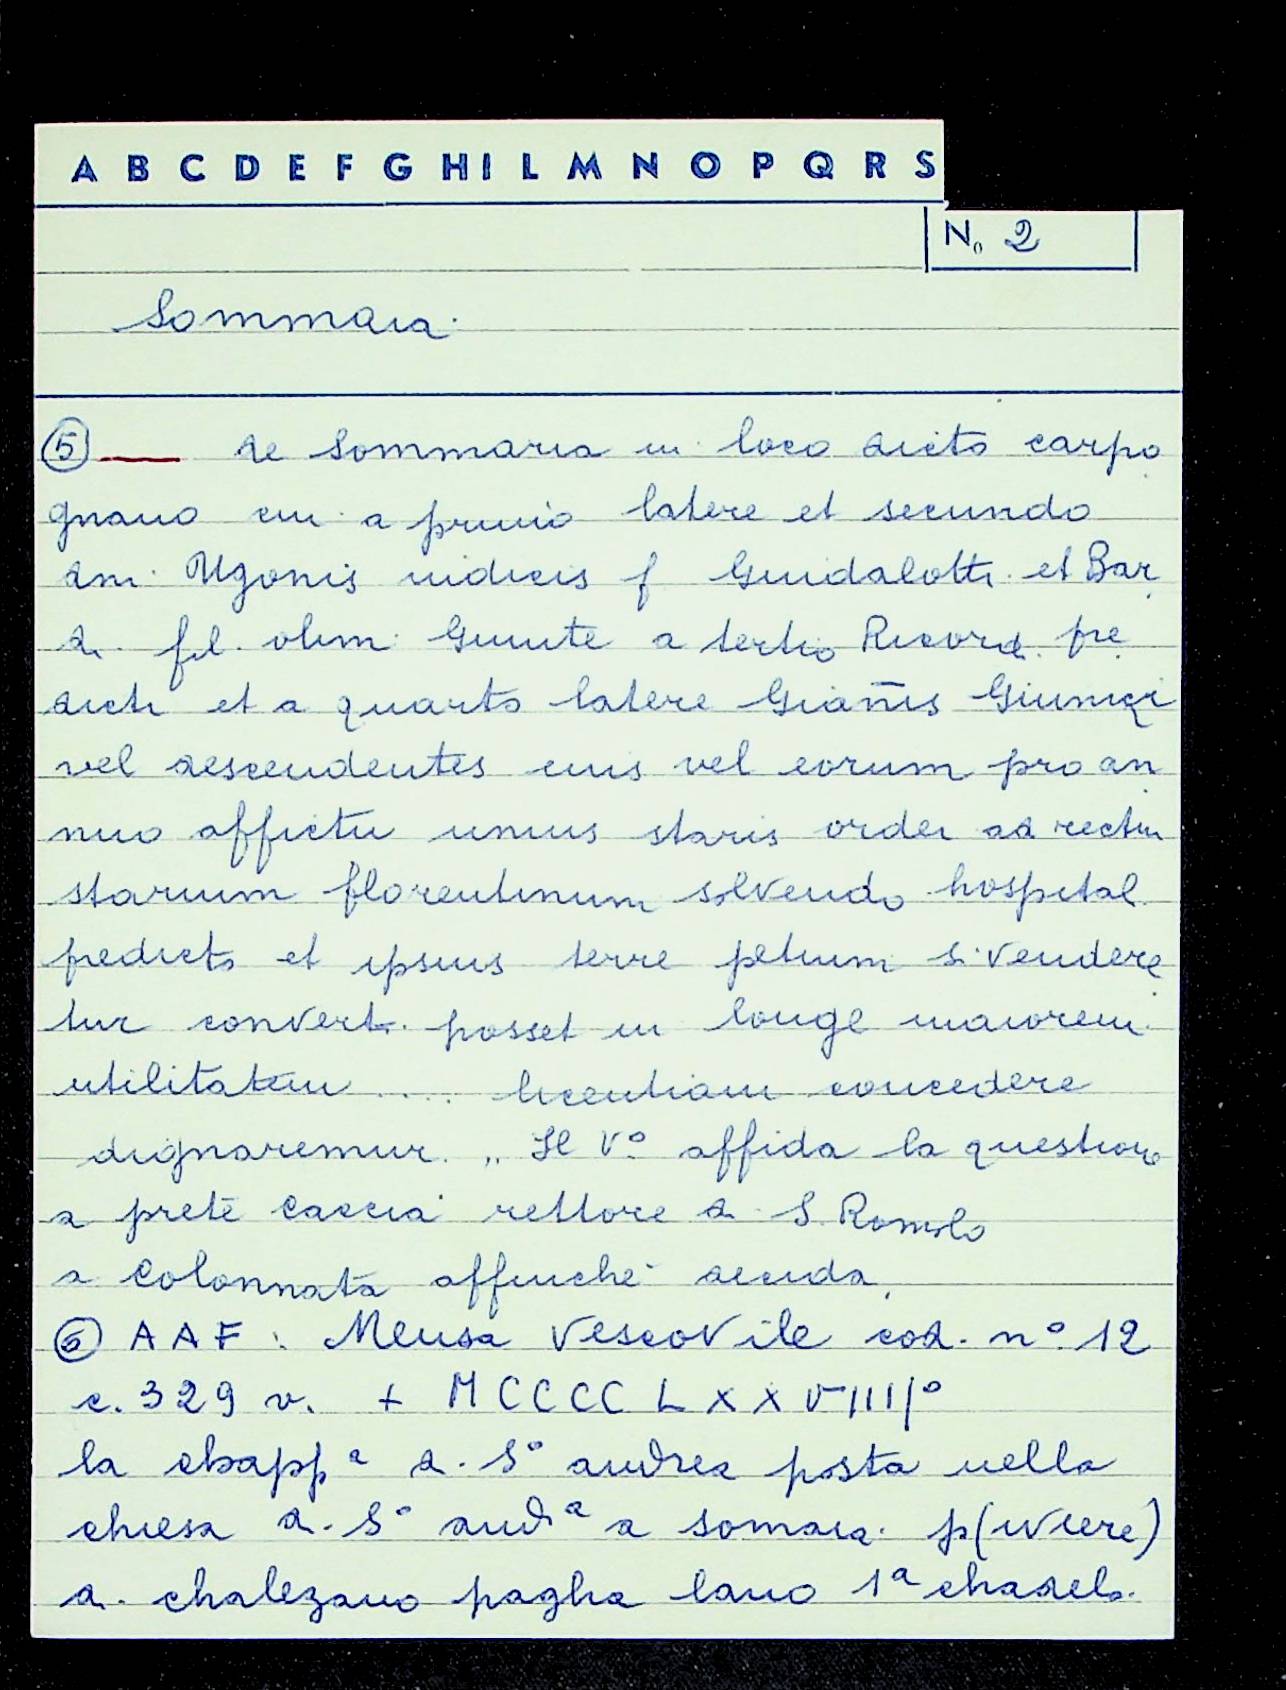 A B C D E F G H I L M N O P Q R S
N. 2
Sommaia
5 de Sommaria in loco dicto carpo
gnano cui a primo latere et secundo
dni Ugonis iudicis f Guidalotti et Bar
di fil. olim Giunte a tertio Ricord. pre
dicti et a quarto latere Giannis Giunizi
vel descendentes eius vel eorum pro an
nuo affictu unius staris ordei ad rectu
starium florentinum solvendo hospital
predicto et ipsius terre petium si vendere
tur converti posset in longe maiorem
utilitatem .... licentiam concedere
dignaremur. „ Il V° affida la questione
a prete Caccia rettore di S. Romolo
a Colonnata affinché decida.
6 A A F : Mensa Vescovile cod. n° 12
c. 329 v. + M C C C C L X X V I I I I°
la chappª di S° andrea posta nella
chiesa di S° andª a somaia p(iviere)
di chalezano pagha lano 1ª chandelo